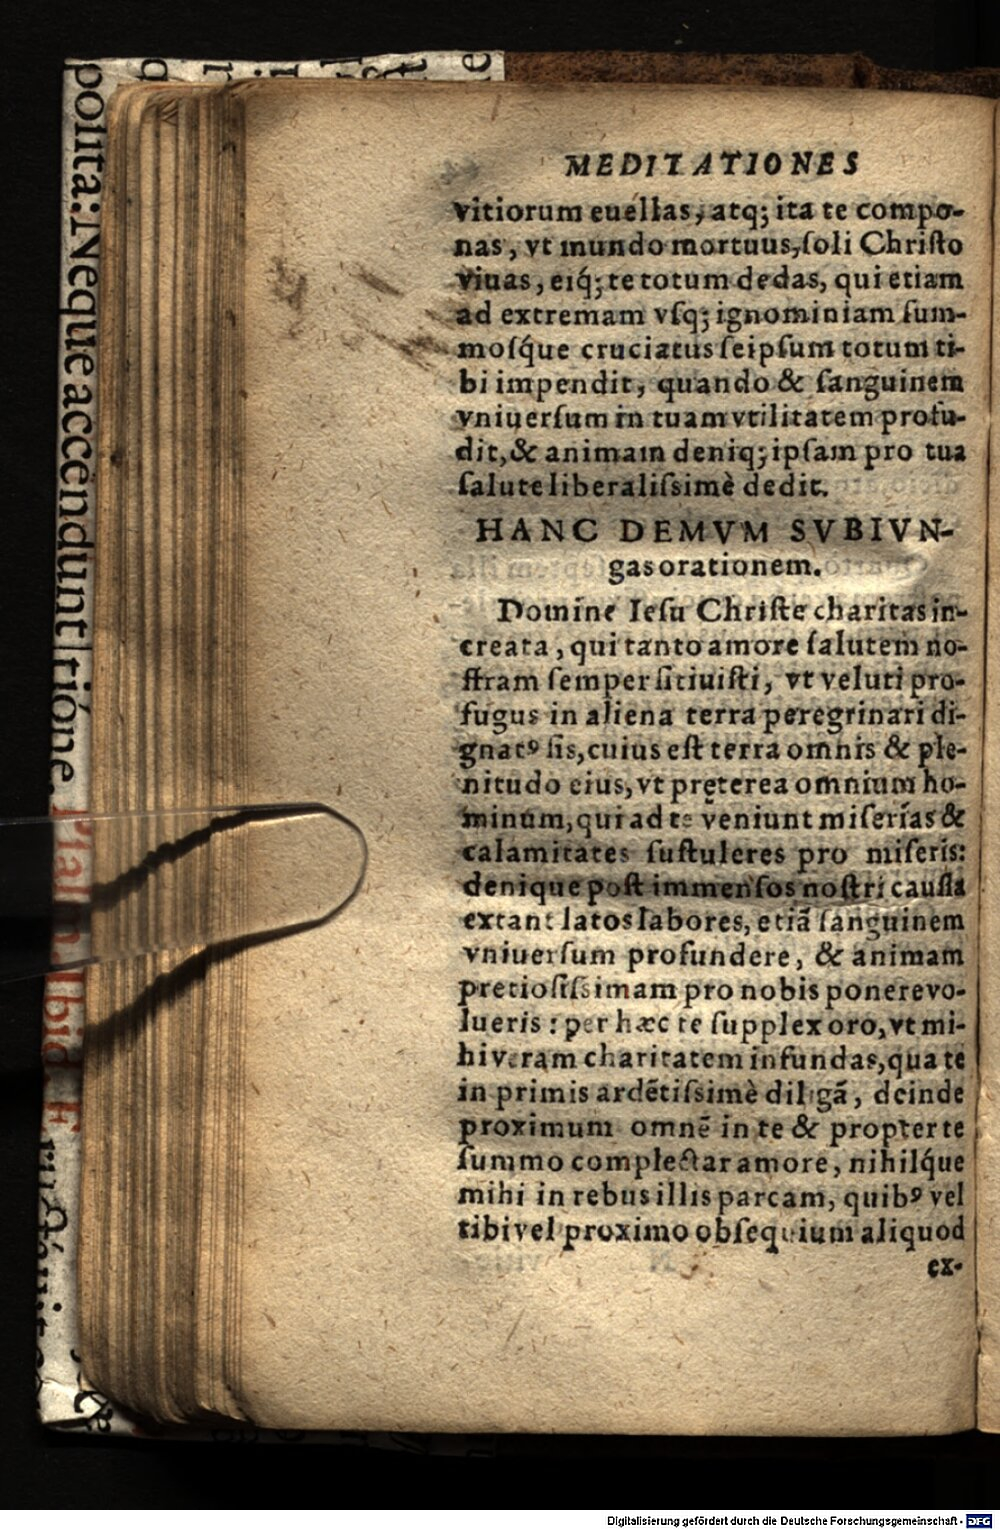 MEDITATIONES
vitiorum euellas, atq; ita te compo-
nas, vt mundo mortuus, ſoli Chriſto
viuas, eiq́; te totum dedas, qui etiam
ad extremam vſq; ignominiam ſum-
moſq́ue cruciatus ſeipſum totum ti-
bi impendit, quando & ſanguinem
vniuerſum in tuam vtilitatem profu-
dit, & animam deniq; ipſam pro tua
ſalute liberaliſsimè dedit.
HANC DEMVM SVBIVN-
gas orationem.
Domine Ieſu Chriſte charitas in-
creata, qui tanto amore ſalutem no-
ſtram ſemper ſitiuiſti, vt veluti pro-
fugus in aliena terra peregrinari di-
gnatꝰ ſis, cuius eſt terra omnis & ple-
nitudo eius, vt pręterea omnium ho-
minum, qui ad te veniunt miſerías &
calamitates ſuſtuleres pro miſeris:
denique poſt immenſos noſtri cauſſa
extant latos labores, etiã ſanguinem
vniuerſum profundere, & animam
pretioſiſsimam pro nobis ponere vo-
lueris: per hæc te ſupplex oro, vt mi-
hi veram charitatem infundas, qua te
in primis ardẽtiſsimè diligã, deinde
proximum omnẽ in te & propter te
ſummo complectar amore, nihilq́ue
mihi in rebus illis parcam, quibꝰ vel
tibi vel proximo obſequium aliquod
ex-
polita: Neque accéndunt
trióne. Pſalm. Ibid.
Digitalisierung gefördert durch die Deutsche Forschungsgemeinschaft - DFG